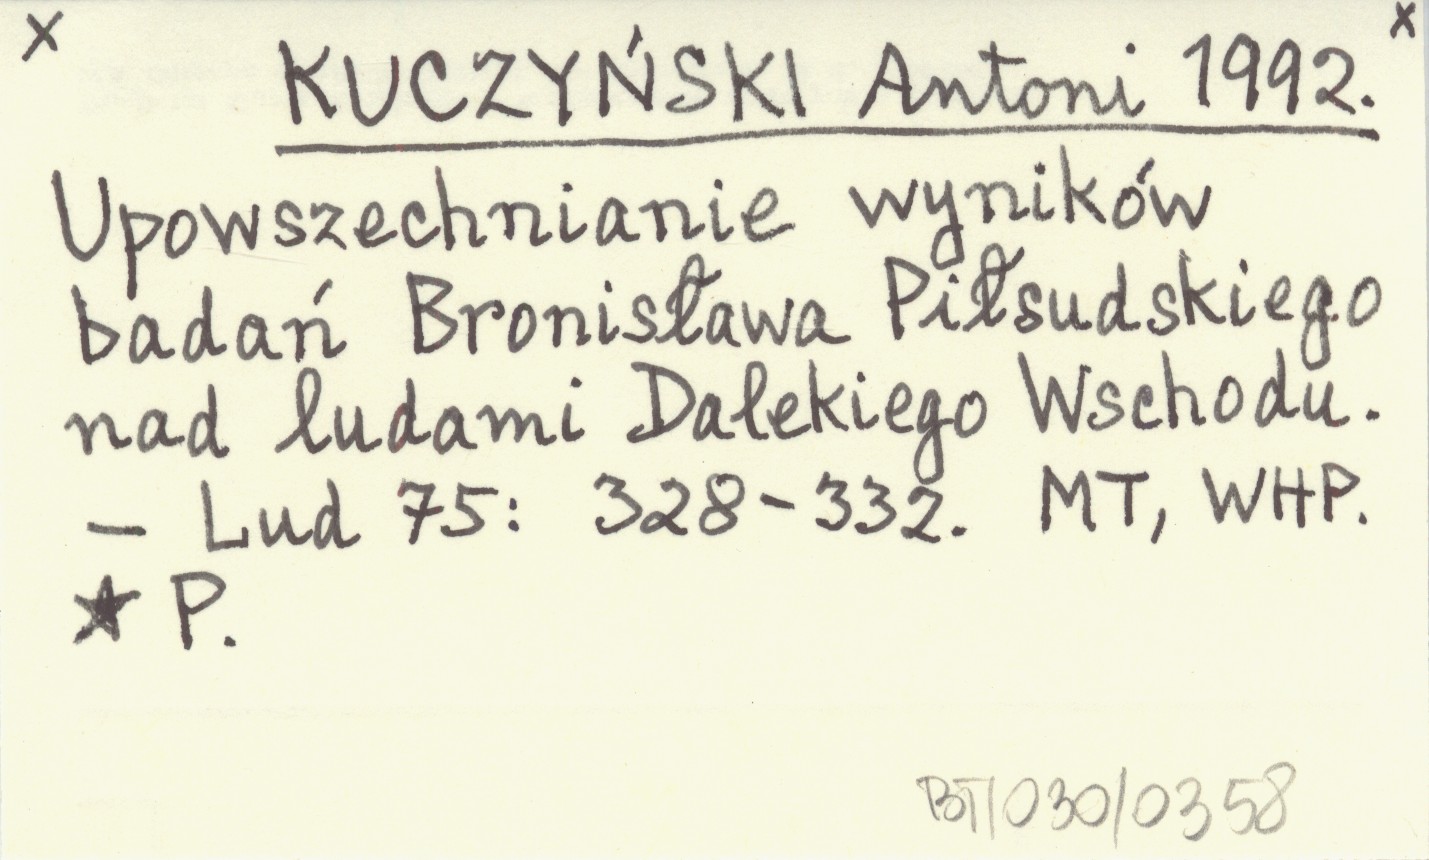 x x
KUCZYŃSKI Antoni 1992.
Upowszechnianie wyników
badań Bronisława Piłsudskiego
nad ludami Dalekiego Wschodu.
— Lud 75: 328-332. MT, WHP.
★ P.
BT/030/0358